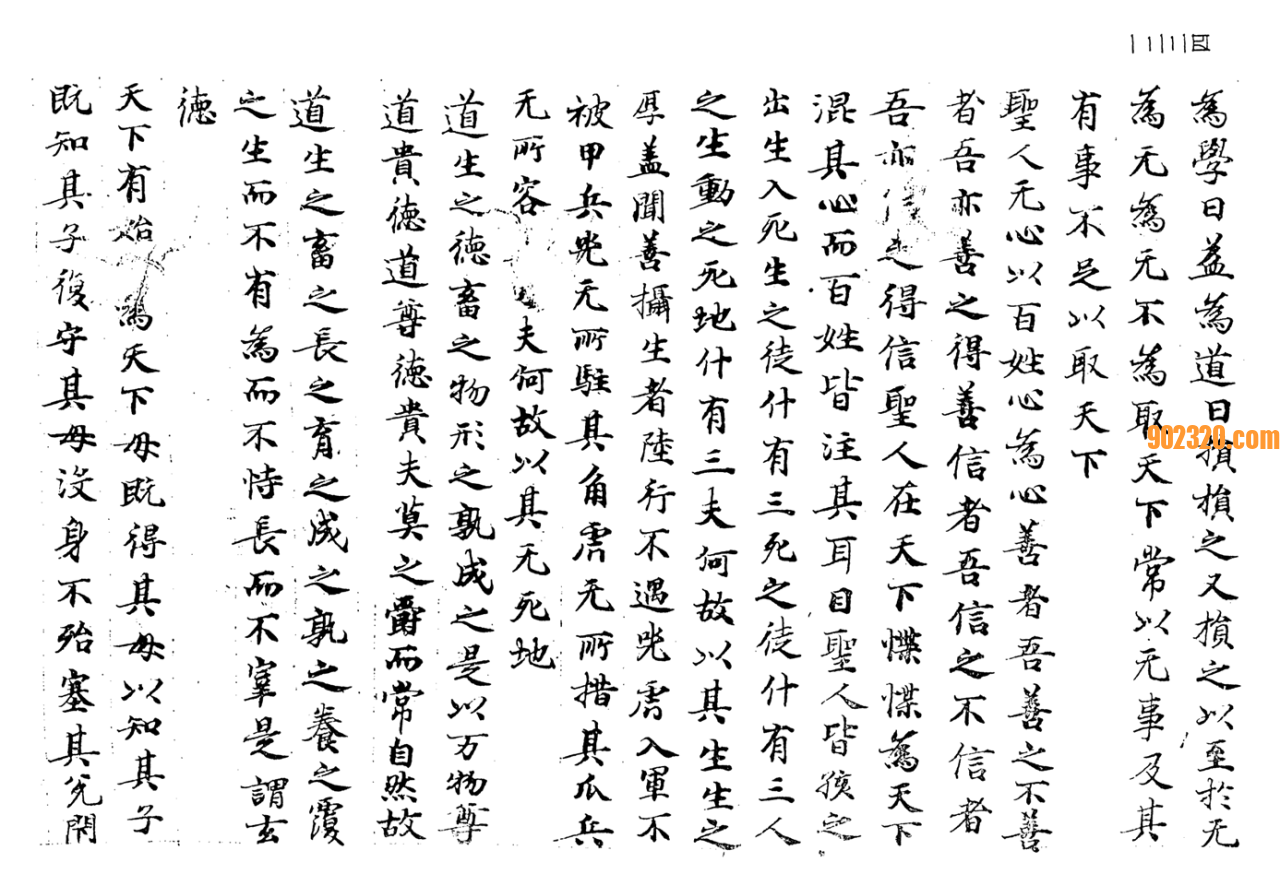 為學日益為道日損損之又損之以至於无
為无為无不為取天下常以无事及其
有事不足以取天下
聖人无心以百姓心為心善者吾善之不善
者吾亦善之得善信者吾信之不信者
吾亦信之得信聖人在天下惵惵為天下
混其心而百姓皆注其耳目聖人皆孩之
出生入死生之徒什有三死之徒什有三人
之生動之死地什有三夫何故以其生生之
厚盖聞善攝生者陸行不遇兕虎入軍不
被甲兵兕无所駐其角虎无所措其爪兵
无所容 夫何故以其无死地
道生之德畜之物形之孰成之是以万物尊
道貴德道尊德貴夫莫之爵而常自然故
道生之畜之長之育之成之孰之養之覆
之生而不有為而不恃長而不宰是謂玄
德
天下有始 為天下母既得其母以知其子
既知其子復守其母没身不殆塞其兊閇
902320.com